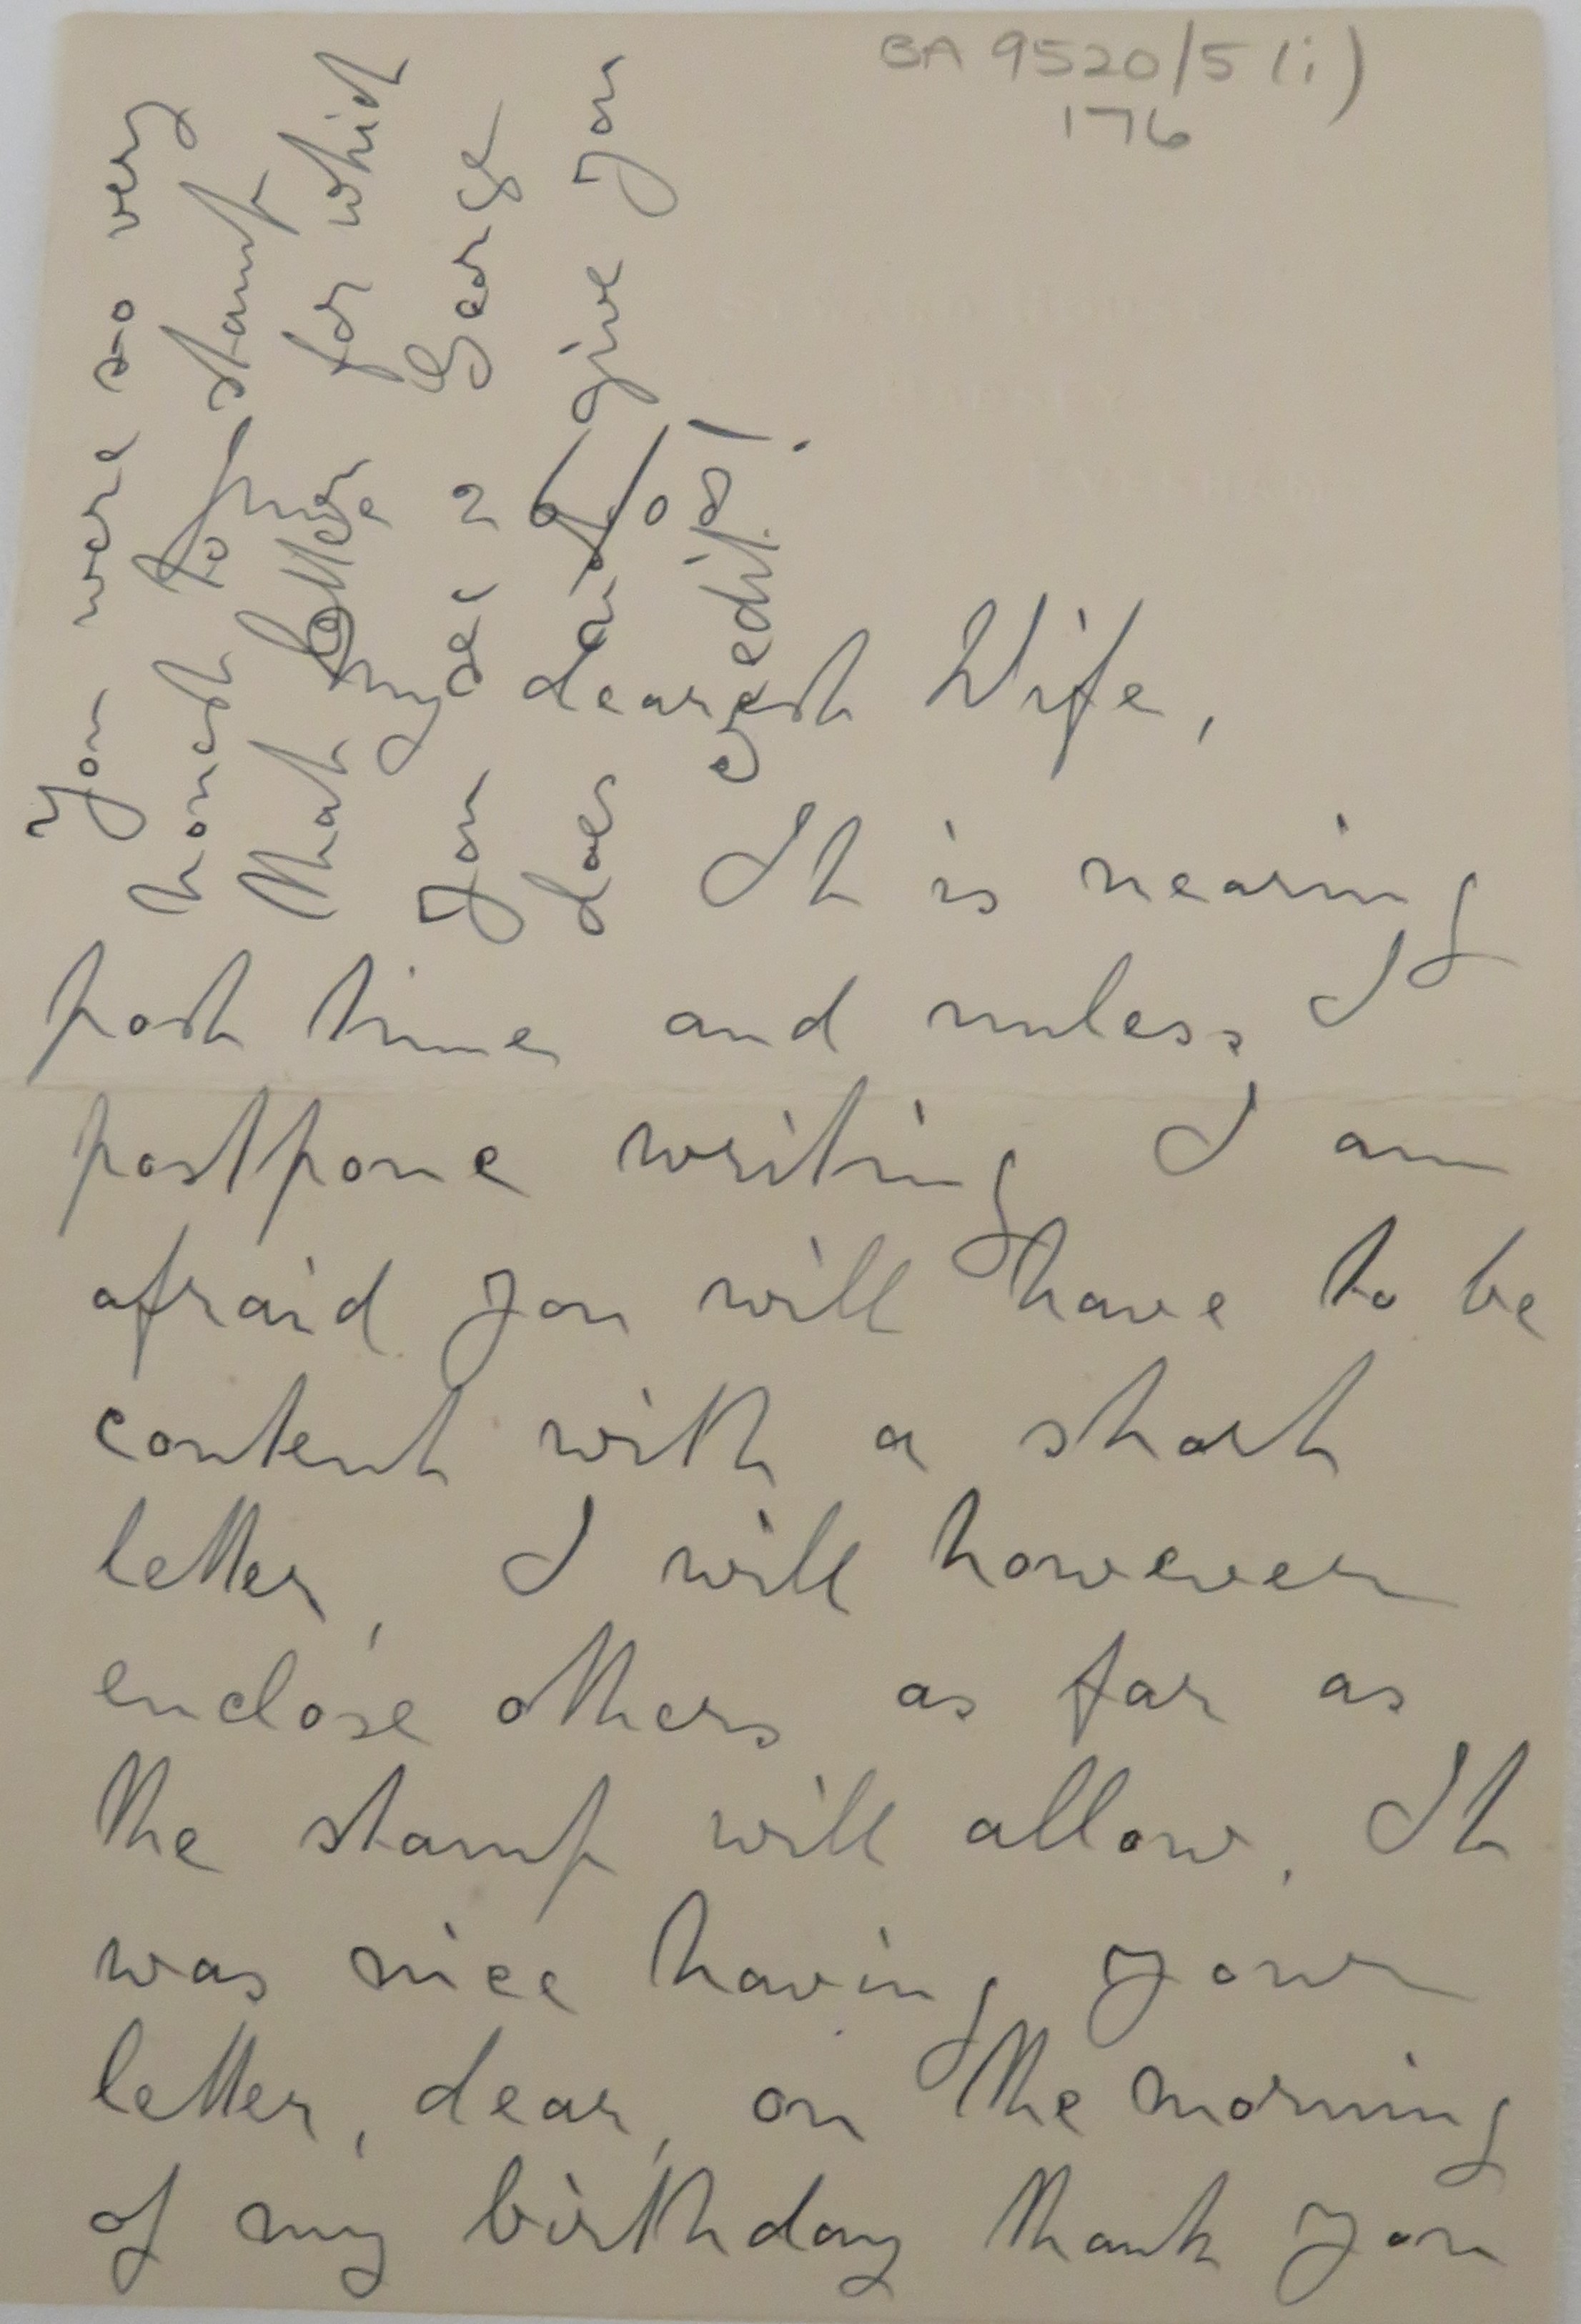 BA 9520/5 (i)
176
You were so very
honest to stamp
that letter for which
you see 2 George
does give you
credit!
My dearest Wife,
It is nearing
post time and unless I
postpone writing I am
afraid you will have to be
content with a short
letter, I will however
enclose others as far as
the stamp will allow. It
was nice having your
letter, dear, on the morning
of my birthday thank you